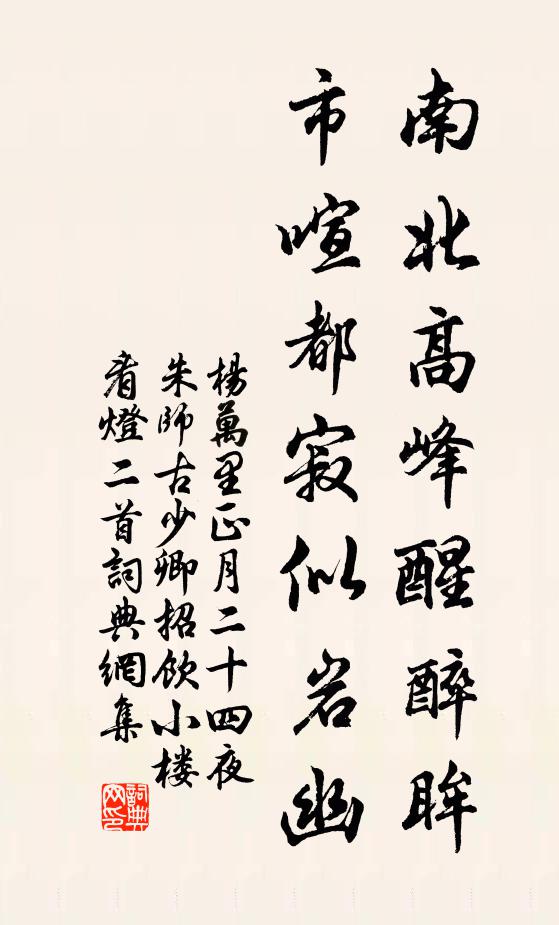 南北高峰醒醉眸
市喧都寂似岩幽
楊萬里正月二十四夜
朱師古少卿招飲小楼
看燈二首詞典網集
詞典网印